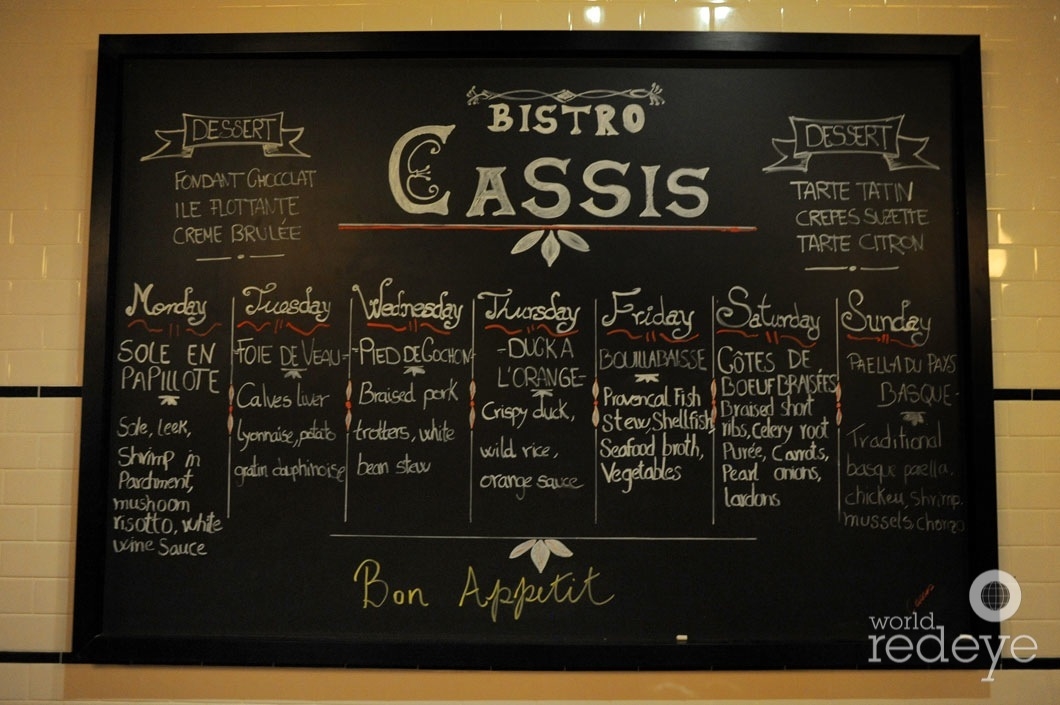 BISTRO
CASSIS
DESSERT
FONDANT CHOCOLAT
ILE FLOTTANTE
CREME BRULÉE
DESSERT
TARTE TATIN
CREPES SUZETTE
TARTE CITRON
Monday
SOLE EN
PAPILLOTE
Sole, leek,
Shrimp in
Parchment,
mushoom
risotto, white
wine Sauce
Tuesday
-FOIE DE VEAU-
Calves liver
lyonnaise, potato
gratin dauphinoise
Wednesday
-PIED DE COCHON-
Braised pork
trotters, white
bean stew
Thursday
-DUCK A
L'ORANGE-
Crispy duck,
wild rice,
orange sauce
Friday
BOUILLABAISSE
Provencal Fish
Stew, Shellfish,
Seafood broth,
Vegetables
Saturday
CÔTES DE
BOEUF BRAISÉES
Braised short
ribs, Celery root
Purée, Carrots,
Pearl onions,
lardons
Sunday
PAELLA DU PAYS
BASQUE-
Traditional
basque paella,
chicken, shrimp,
mussels, chorizo
Bon Appetit
world
redeye